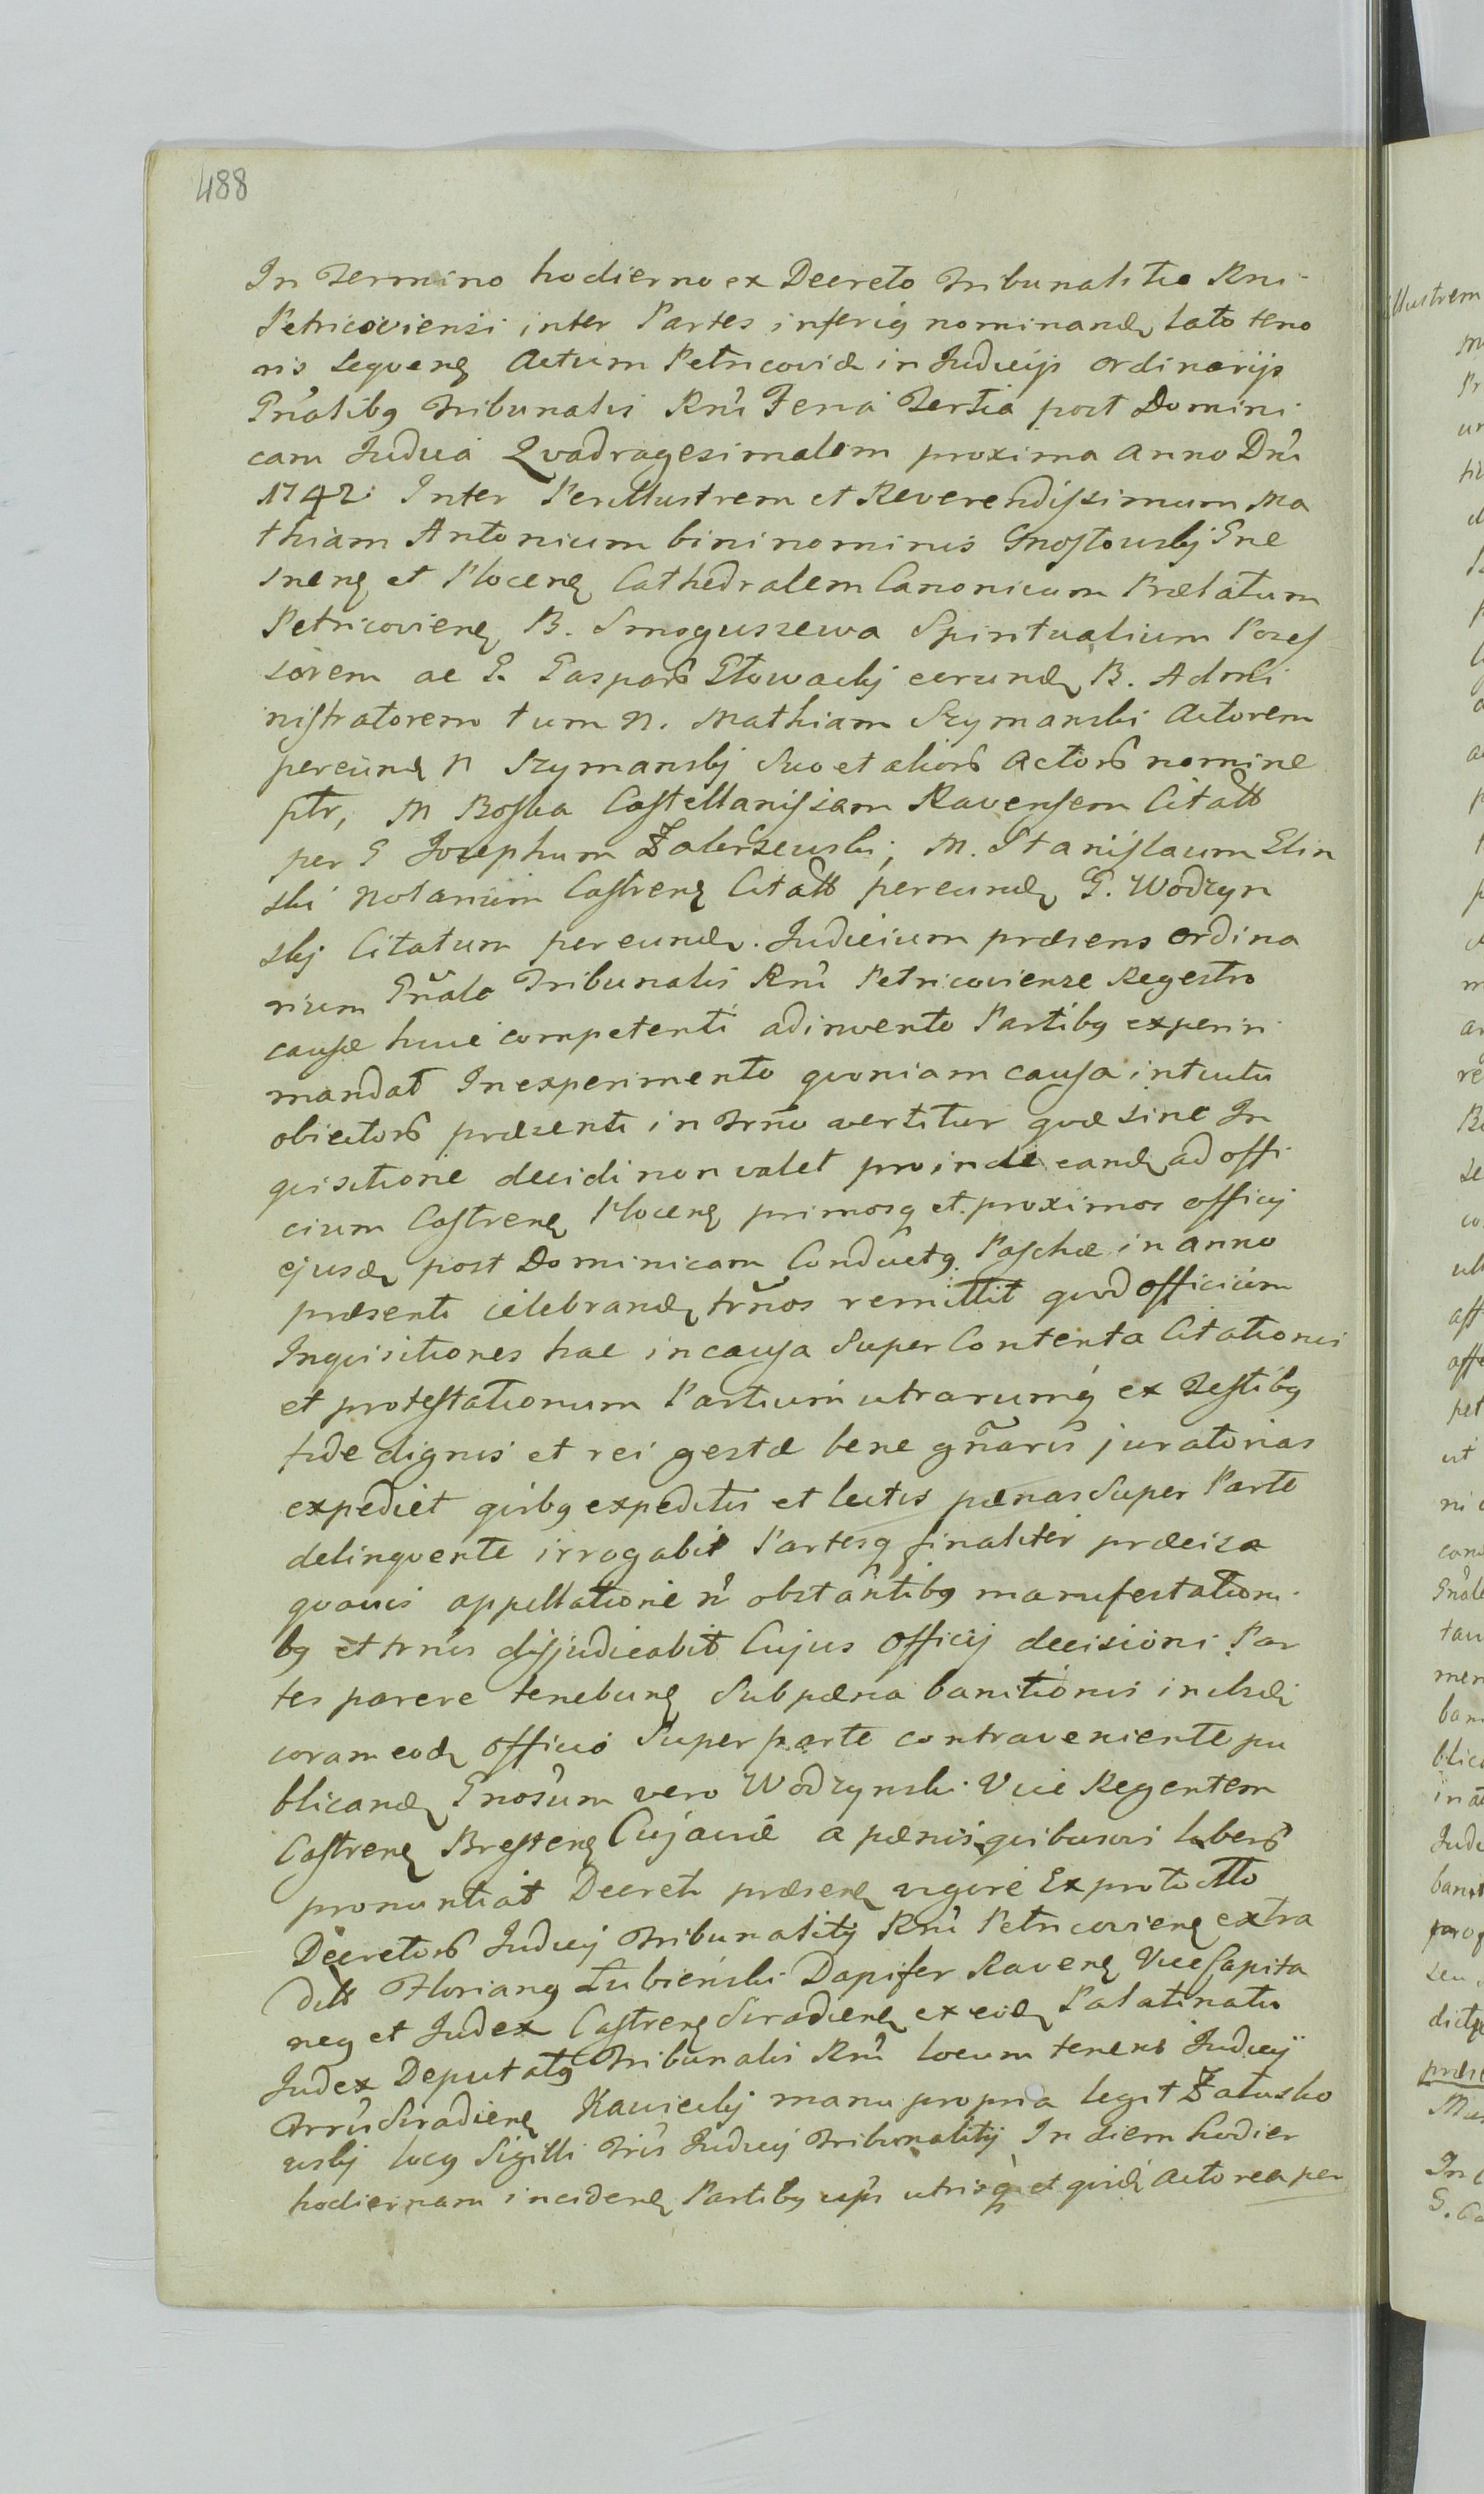 488
In Termino hodierno ex Decreto Tribunalitio Rni
Petricoviensi inter Partes inferiꝰ nominanđ lato teno
ris sequenꝭ Actum Petricoviæ in Judicijs ordinarijs
Gnãlibꝰ Tribunalis Rni Feria Tertia post Domini
cam Judica Quadragesimalem proxima Anno Dni
1742 Inter Perillustrem et Reverendissimum Ma
thiam Antonium bini nominis Gnostowskj Gne
snenꝭ et Plocenꝭ Cathedralem Canonicum Prælatum
Petricovienꝭ B. Smoguszewa Spiritualium Posses
sorem ac G. Gaspard Głowackj eorunđ B. Admi
nistratorem tum N. Mathiam Szymanski Actorem
pereunđ N Szymanskj suo et alioꝝ Actoꝝ nomine
ptr, M Boska Castellanissam Ravensem Citatt
per G Josephum Zaberzewski, M. Stanislaum Glin
ski Notarium Castrenꝭ Citatt pereunđ G. Wodzyn
skj Citatum pereunđ. Judicium præsens ordina
rium Gnãle Tribunalis Rni Petricoviense Regestro
causæ huic competenti adinvento Partibꝰ experiri
mandat In experimento quoniam causa intuitu
obiectoꝝ præsenti in trno vertitur quæ sine In
quisitione decidi non valet proinde eanđ ad offi
cium Castrenꝭ Plocenꝭ primosꝗ et proximos officij
ejusđ post Dominicam Conductꝰ Paschæ in anno
præsenti celebranđ trños remittit quod officium
Inquisitiones hac in causa super Contenta Citationis
et protestationum Partium utrarumꝗ ex Testibꝰ
fide dignis et rei gestæ bene gñaris juratorias
expediet quibꝰ expeditis et lectis pænas super Parte
delinquente irrogabit Partesꝗ finaliter præcisa
quavis appellatione ñ obstantibꝰ manifestationi
bꝰ et trnis disjudicabit Cujus Officij decisioni Par
tes parere tenebunꝭ sub pæna banitionis
coram eođ officio super parte contraveniente pu
blicanđ Gnosum vero Wodzynski Vice Regentem
Castrenꝭ Brestenꝭ Cujaviæ a pænis quibusvis liberꝝ
pronuntiat Decreti præsenꝭ vigore Ex protocollo
Decretoꝝ Judicij Tribunalitij Rni Petricovienꝭ extra
ditt Florianꝰ Łubieński Dapifer Ravenꝭ Vice Capita
neꝰ et Judex Castrenꝭ Siradienꝭ ex eođ Palatinatu
Judex Deputatꝰ Tribunalis Rni locum tenens Judicij
Trrũ Siradienꝭ Kawieckj manu propria legit Załusko
wskj locꝰ Sigilli Judicij Tribunalitij In diem hodier
hodiernam incidenꝭ Partibꝰ utrisꝗ et quidẽ Actorea per